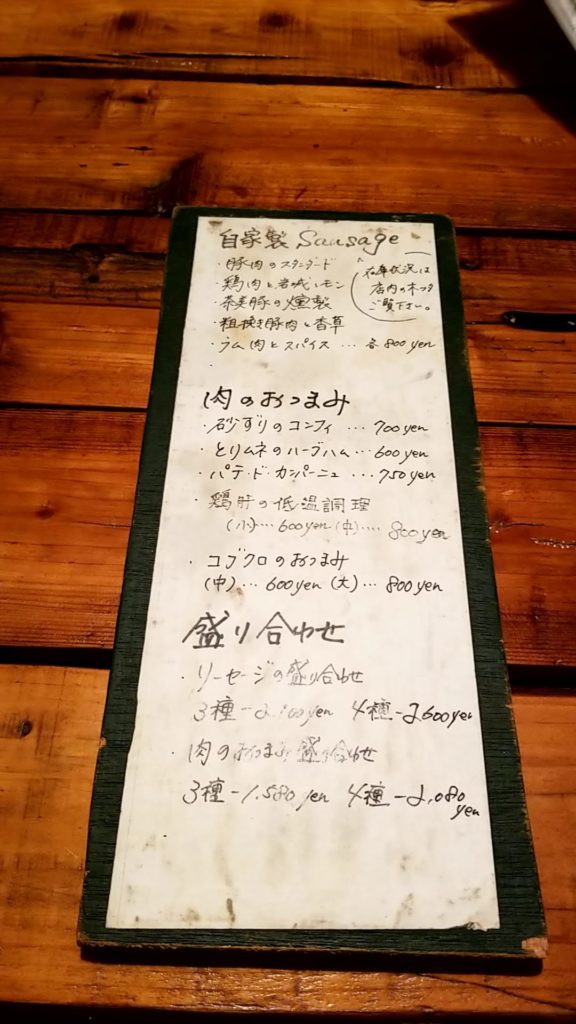 自家製 Sausage
・豚肉のスタンダード
・鶏肉と岩城レモン
・茶美豚の燻製
・粗挽き豚肉と香草
・ラム肉とスパイス … 各 800 yen
在庫状況は
店内の
ご覧下さい。
肉のおつまみ
・砂ずりのコンフィ … 700 yen
・とりムネのハーブハム … 600 yen
・パテ・ド・カンパーニュ … 750 yen
・鶏肝の低温調理
(小)… 600 yen (中)… 800 yen
・コブクロのおつまみ
(中)… 600 yen (大)… 800 yen
盛り合わせ
・ソーセージの盛り合わせ
3種 - 2,100 yen 4種 - 2600 yen
・肉のおつまみ盛り合わせ
3種 - 1,580 yen 4種 - 2,080 yen